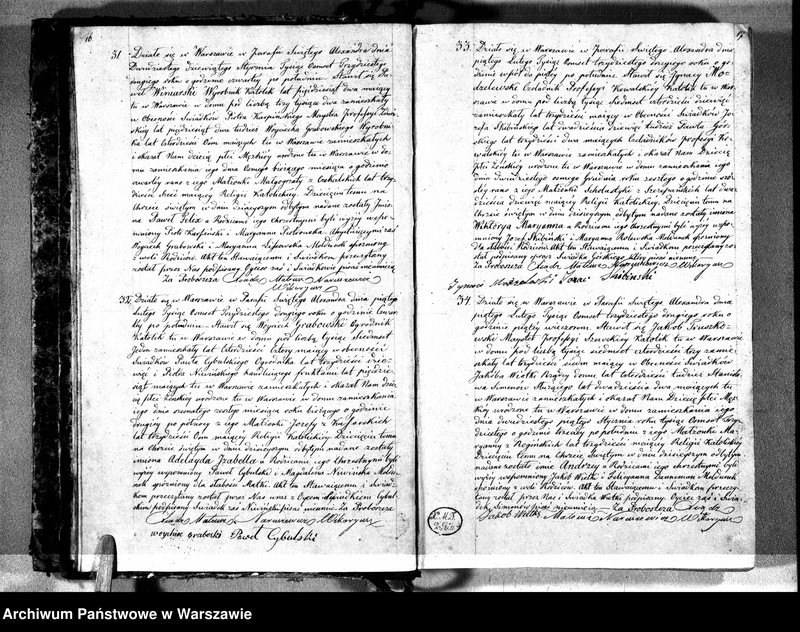 16
31 Działo się w Warszawie w Parafii Świętego Alexandra dnia
Dwudziestego dziewiątego Stycznia Tysiąc Osmset Trzydziestego
drugiego roku o godzinie czwartey po południu Stawił się
Winiarski Wyrobnik Katolik lat pięćdziesiąt dwa maiący
tu w Warszawie w domu pod liczbą trzy tysiące dwa zamieszkały
w Obecności Świadków Piotra Karpińskiego Maystra Professyi
lat pięćdziesiąt dwa tudzież Woyciecha Grabowskiego Wyrobni
ka lat czterdzieści Osm maiących tu w Warszawie zamieszkałych
i okazał Nam dziecię płci Męzkiey urodzone tu w Warszawie w do
mu zamieszkania iego dnia Osmego bieżącego miesiąca o godzinie
czwartey rano z iego Małżonki Małgorzaty z lat trzy
dzieści sześć maiącey Religii Katolickiey. Dziecięciu temu na
Chrzcie świętym w dniu dzisieyszym odbytym nadane zostały Imio
na Paweł Felix a Rodzicami iego chrzestnymi byli wyżey wspo
mniony Piotr Karpiński i Maryanna Piotrowska. Assystującymi zaś
Woyciech Grabowski i Maryanna Lipowska
z woli Rodziców. Akt ten Stawaiącemu i Świadkom przeczytany
został przez Nas podpisany Oyciec zaś i Świadkowie pisać nieumieią
Za Proboszcza Xiądz Mateusz Naruszewicz
Wikaryusz
32 Działo się w Warszawie w Parafii Świętego Alexandra dnia piątego
Lutego Tysiąc Osmset Trzydziestego drugiego roku o godzinie czwar
tey po południu Stawił się Woyciech Grabowski Ogrodnik
Katolik tu w Warszawie w domu pod liczbą Tysiąc siedmset
Jeden zamieszkały lat czterdzieści cztery maiący w obecności
Świadków Pawła Cybulskiego Ogrodnika lat trzydzieści dzie
więć i Piotra Niwińskiego handluiącego fruktami lat pięćdzie
siąt maiących tu w Warszawie zamieszkałych i okazał Nam dzie
cię płci Żeńskiey urodzone tu w Warszawie w domu zamieszkania
iego dnia osmnastego zeszłego miesiąca roku bieżącego o godzinie
drugiey po północy z iego Małżonki Józefy z
lat trzydzieści Osm maiącey Religii Katolickiey Dziecięciu temu
na Chrzcie Świętym w dniu dzisieyszym odbytym nadane zostały
imiona Adelayda Izabella a Rodzicami iego Chrzestnymi byli
wyżey wspomniony Paweł Cybulski i Magdalena Niwińska
spóźniony dla słabości Matki. Akt ten Stawaiącemu i Świad
kom przeczytany został przez Nas wraz z Oycem i Świadkiem Cybul
skim podpisany Świadek zaś Niwiński pisać nieumie Za Proboszcza
Xiądz Mateusz Naruszewicz Wikaryusz
woyciech graboski Paweł Cybulski
33. Działo się w Warszawie w Parafii Świętego Alexandra dnia
piątego Lutego Tysiąc Osmset trzydziestego drugiego roku o go
dzinie wpół do piątey po południu Stawił się Ignacy Mo
dzelewski Czeladnik Professyi Kowalskiey Katolik tu w War
szawie w domu pod liczbą Tysiąc siedmset czterdzieści dziewięć
zamieszkały lat trzydzieści maiący w Obecności Świadków Jó
zefa Skibińskiego lat dwadzieścia dziewięć tudzież Pawła Gór
skiego lat trzydzieści dwa maiących Czeladników professyi Ko
walskiey tu w Warszawie zamieszkałych i okazał Nam Dziecię
płci Żeńskiey urodzone tu w Warszawie w domu zamieszkania iego
dnia dwudziestego osmego Grudnia roku zeszłego o godzinie szó
stey rano z iego Małżonki Scholastyki z Szczepańskich lat dwa
dzieścia dziewięć maiącey Religii Katolickiey. Dziecięciu temu na
Chrzcie świętym w dniu dzisieyszym odbytym nadane zostały imiona
Wiktorya Maryanna a Rodzicami iego Chrzestnymi byli wyżey wspo
mniony Józef Skibiński i Maryanna
dla słabości Rodziców. Akt ten Stawaiącemu i Świadkom przeczytany zo
stał podpisany przez Świadka Górskiego który pisać nieumie
Za Proboszcza Xiądz Mateusz Naruszewicz Wikaryusz
Skibinski
34. Działo się w Warszawie w Parafii Świętego Alexandra dnia
piątego Lutego Tysiąc Osmset Trzydziestego drugiego roku o
godzinie piątey wieczorem Stawił się Jakob
wski Maystet Professyi Szewckiey Katolik tu w Warszawie
w domu pod liczbą Tysiąc siedmset czterdzieści trzy zamie
szkały lat trzydzieści siedm maiący w Obecności Świadków
Jakoba Wielki Rządcy domu lat czterdzieści tudzież Stanisła
wa Simonów Stróżego lat dwadzieścia dwa maiących tu
w Warszawie zamieszkałych i okazał Nam Dziecię płci Męz
kiey urodzone tu w Warszawie w domu zamieszkania iego
dnia dwudziestego piątego Stycznia roku Tysiąc Osmset trzy
dziestego o godzinie trzeciey po południu z iego Małżonki Ma
ryanny z Rogińskich lat trzydzieści maiącey Religii Katolickiey
Dziecięciu temu na Chrzcie Świętym w dniu dzisieyszym odbytym
nadane zostało imie Andrzey a Rodzicami iego chrzestnymi byli
wyżey wspomniony Jakob Wielki i Felicyanna
spóźniony z woli Rodziców Akt ten Stawaiącemu i Świadkom przeczy
tany został przez Nas i Świadka Wielki podpisany Oyciec zaś i Świa
dek Simonów pisać nieumieią Za Proboszcza Xiądz
Jakób Wielki Mateusz Naruszewicz Wikaryusz
Archiwum Państwowe w Warszawie